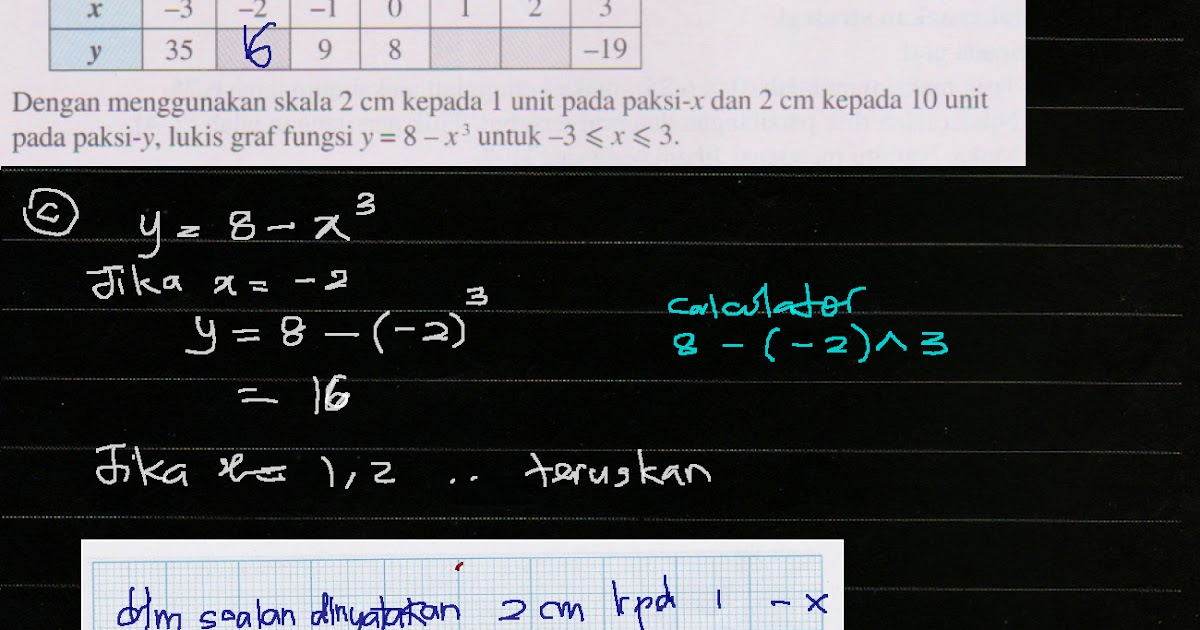 x −3 −2 −1 0 1 2 3
y 35 16 9 8 −19
Dengan menggunakan skala 2 cm kepada 1 unit pada paksi-x dan 2 cm kepada 10 unit
pada paksi-y, lukis graf fungsi y = 8 – x³ untuk –3 ⩽ x ⩽ 3.
c y = 8 − x³
Jika x = −2
y = 8 − (−2)³
= 16
calculator
8 − (−2)^3
Jika x = 1, 2 .. teruskan
dlm soalan dinyatakan 2 cm kpd 1 − x